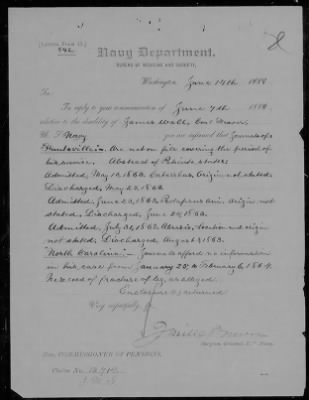 Navy Department,
BUREAU OF MEDICINE AND SURGERY,
Washington, June 14th 1888.
In reply to your communication of June 7th 1888,
relative to the disability of James Wall,
U. S. Navy you are informed that Journals of
Huntsville are not on file covering the period of
his service. Abstract of Patients states:
Admitted, May 10, 1863, Catarrhus, Origin not stated.
Discharged, May 23, 1863.
Admitted, June 23, 1863, origin not
stated, Discharged, June 29, 1863.
Admitted, July 30, 1863, location and origin
not stated, Discharged, August 1863.
"North Carolina" Journals afford no information
in his case from January 25, to February 6, 1864.
No record of fracture of leg as alleged.
Enclosure returned
Very respectfully,
Surgeon General, U. S. Navy.
Hon. COMMISSIONER OF PENSIONS.
Claim No.